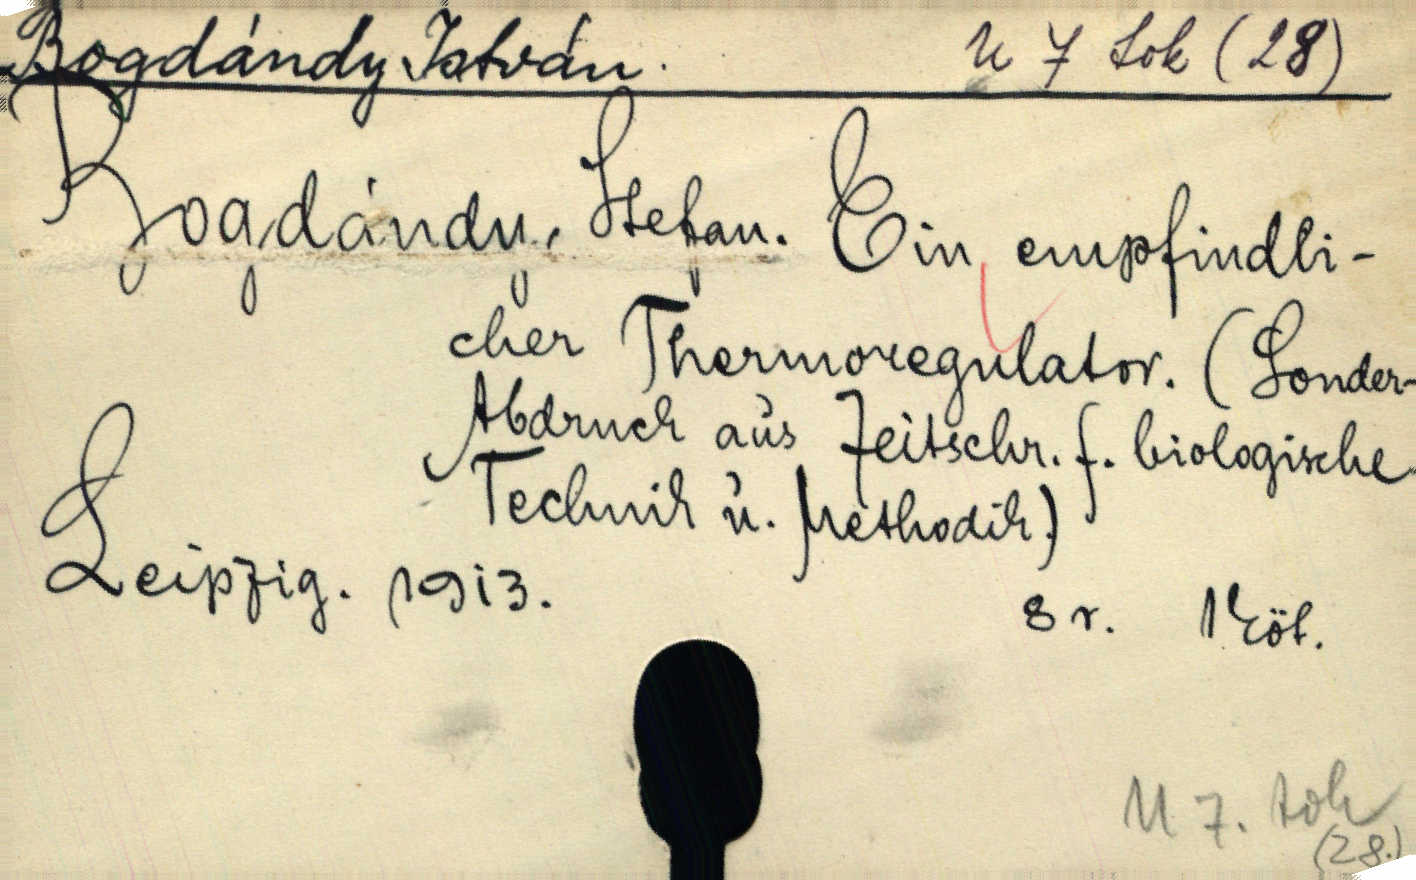 Bogdándy István.
U 7 tok (28)
Bogdándy, Stefan. Ein empfindli-
cher Thermoregulator. (Sonder-
Abdruck aus Zeitschr. f. biologische
Technik u. Methodik)
Leipzig. 1913.
8 r. 1 köt.
U 7. tok
(28.)